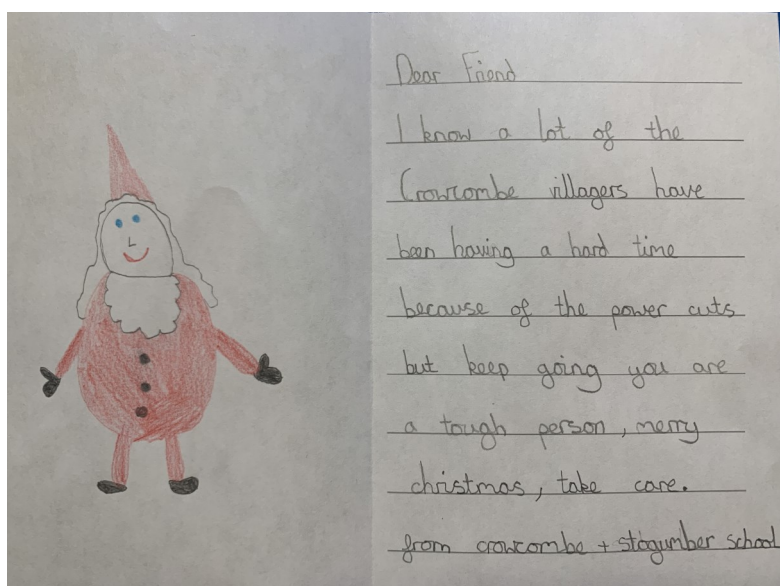 Dear Friend
I know a lot of the
Crowcombe villagers have
been having a hard time
because of the power cuts
but keep going you are
a tough person, merry
christmas, take care.
from crowcombe + stogumber school